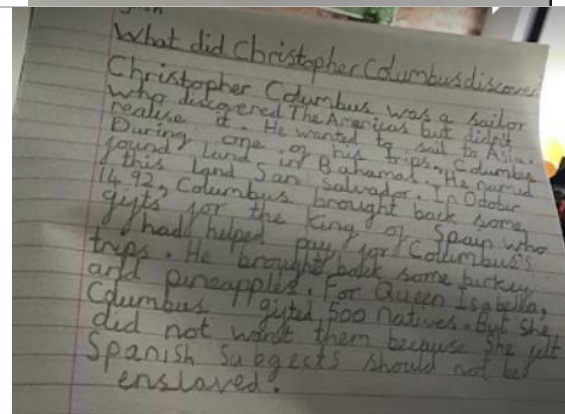 What did Christopher Columbus discover
Christopher Columbus was a sailor
who discovered The Americas but didn't
realise it. He wanted to sail to Asia.
During one of his trips, Columbus
found land in Bahamas. He named
this land San Salvador. In Octobr
1492, Columbus brought back some
gifts for the king of Spain who
had helped pay for Columbus's
trips. He brought back some turkey
and pineapples. For Queen Isabella,
Columbus gifted 500 natives. But she
did not want them because she felt
Spanish Subgects should not be
enslaved.